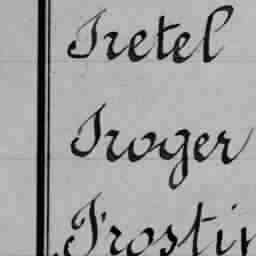 Fretel
Froger
Frostin